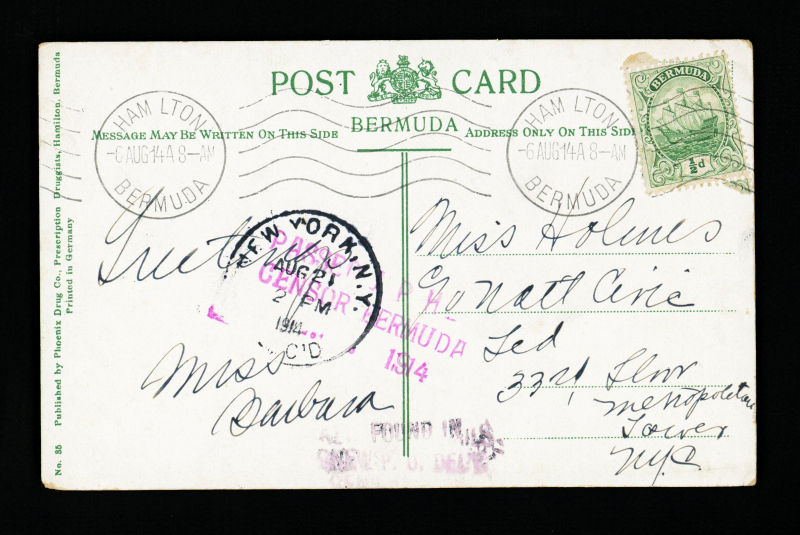 POST CARD
HAMILTON
-6 AUG 14 A 8-AM
BERMUDA
MESSAGE MAY BE WRITTEN ON THIS SIDE
BERMUDA
ADDRESS ONLY ON THIS SIDE
HAMILTON
-6 AUG 14 A 8-AM
BERMUDA
BERMUDA
½d
Greetings
Miss
Barbara
NEW YORK, N.Y.
AUG 21
2 PM
1914
C'D
PASSED
CENSOR BERMUDA
1914
Miss Holmes
c/o Natl Civic
Fed
33rd Floor
Metropolitan
Tower
NYC
FOUND IN
No. 35 Published by Phoenix Drug Co., Prescription Druggists, Hamilton, Bermuda
Printed in Germany